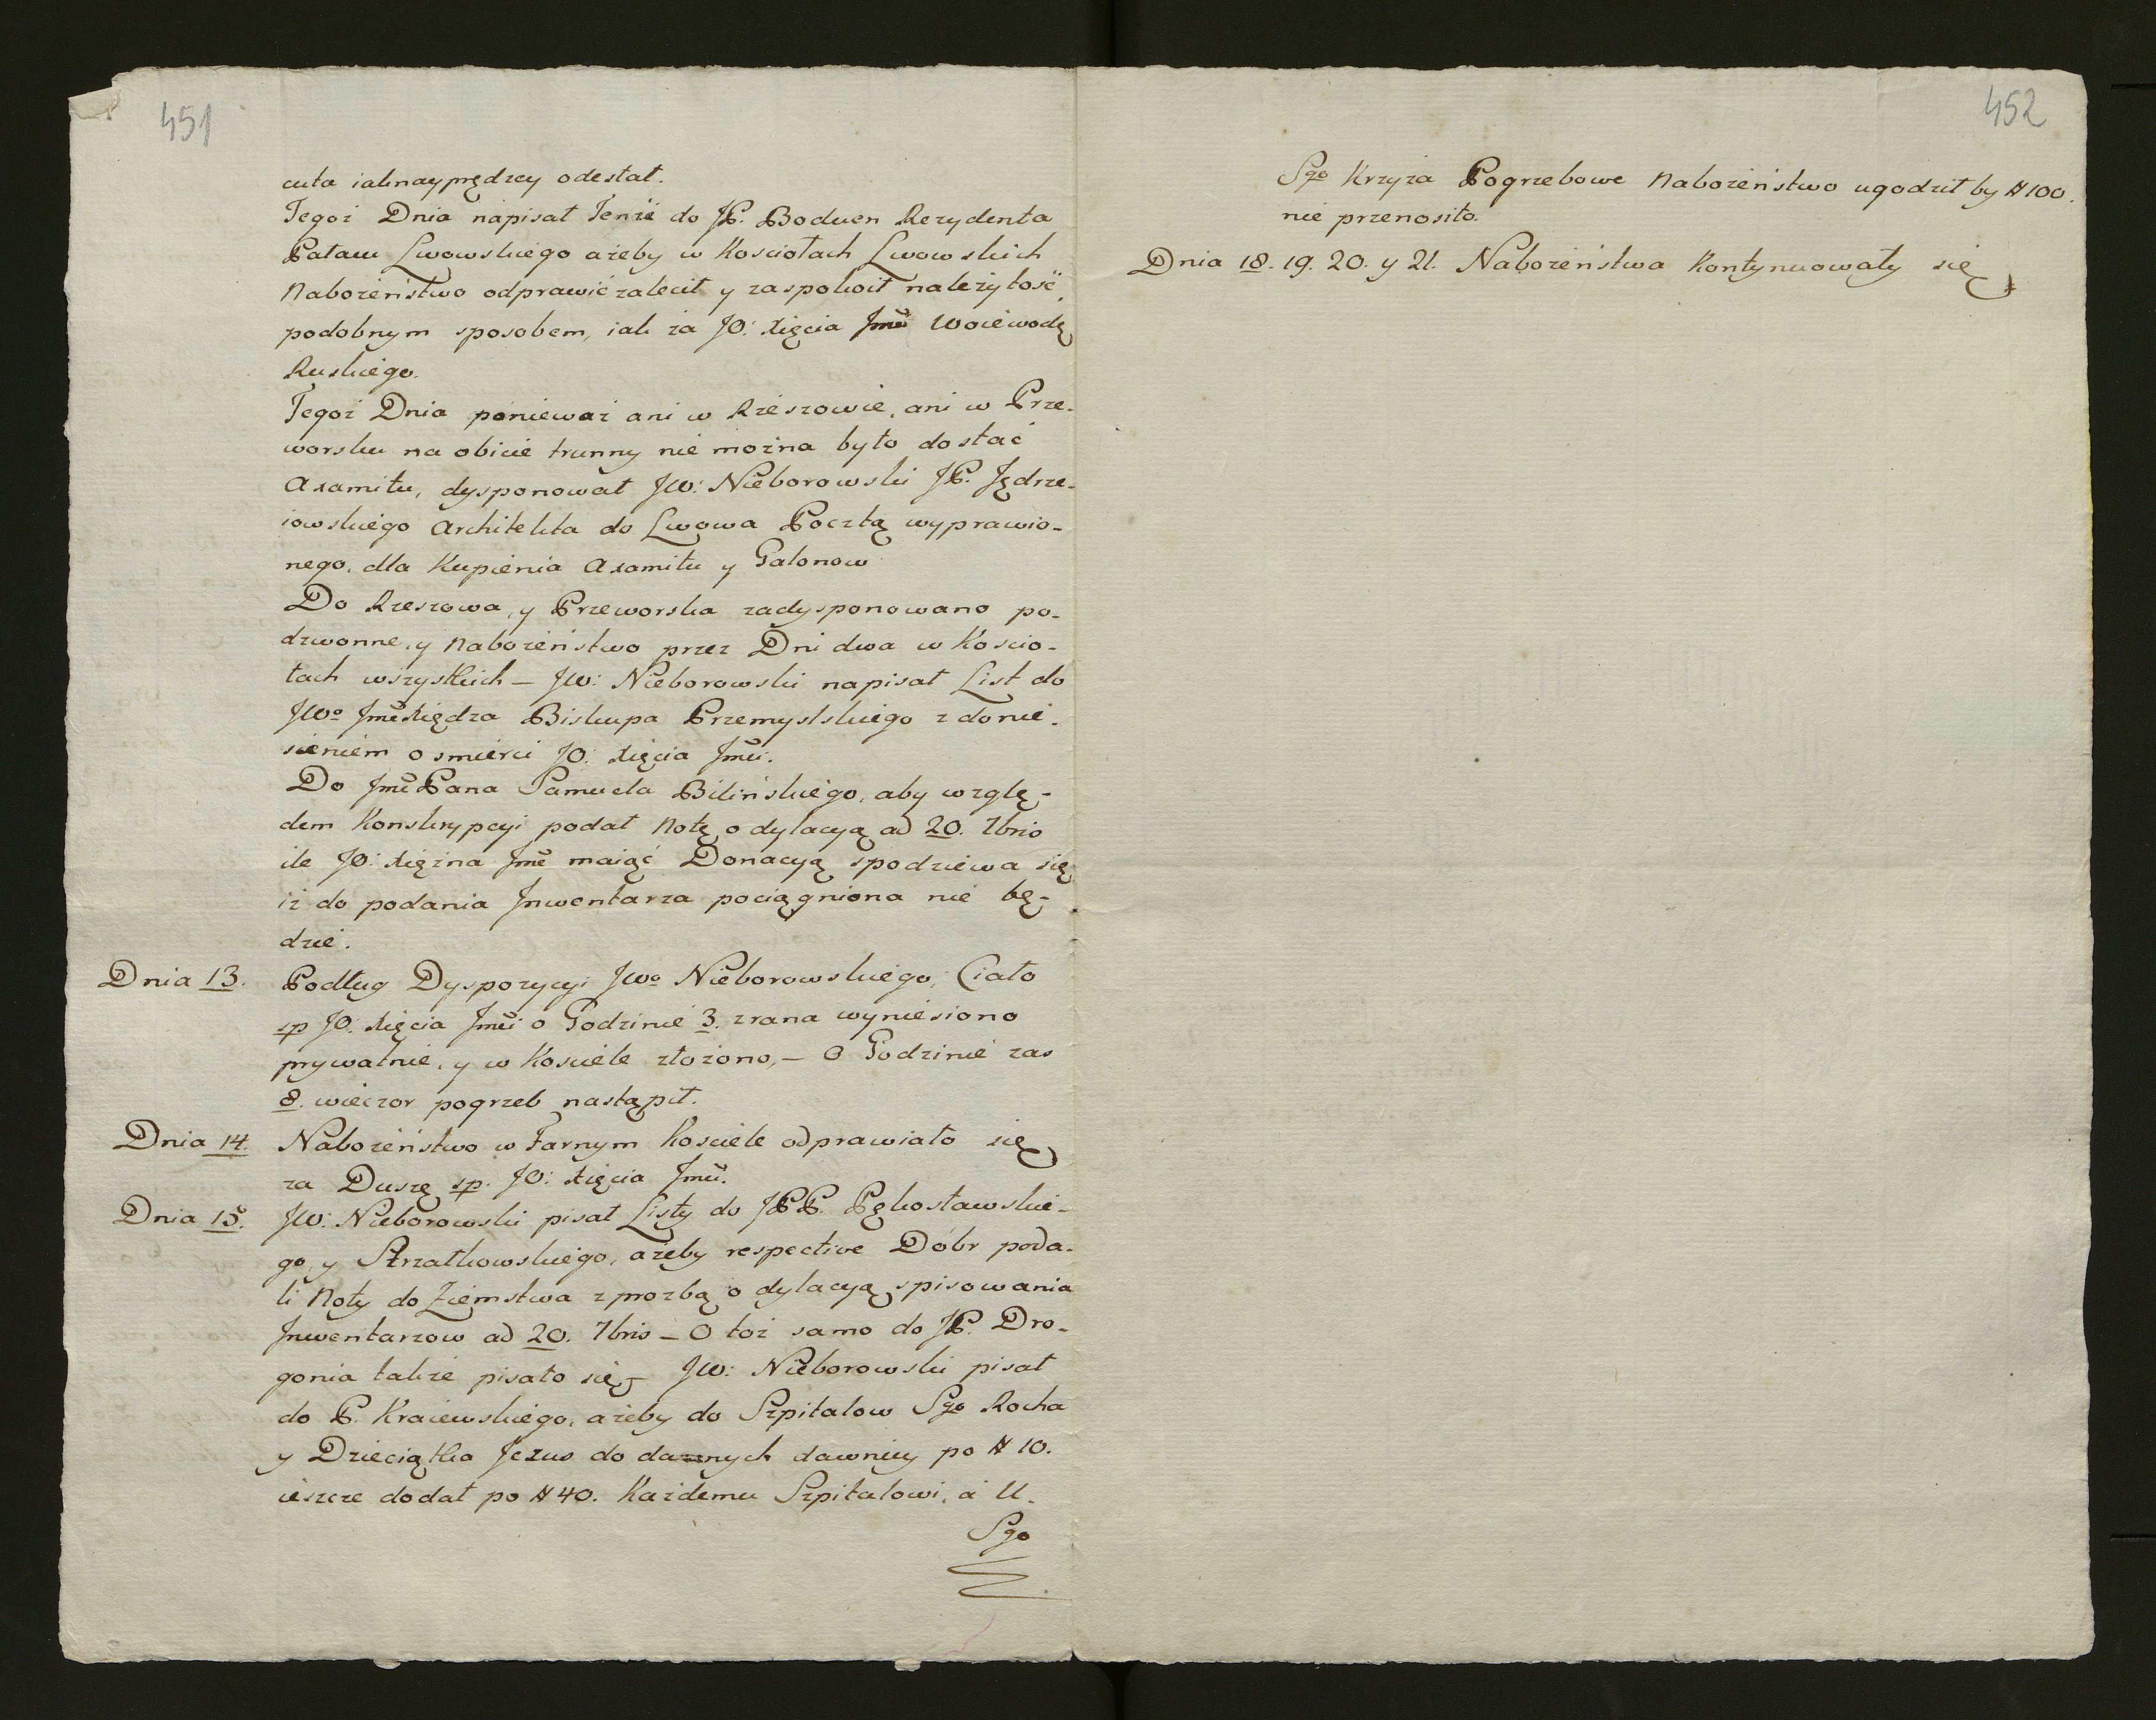 451
cuta iaknayprędzey odesłał.
Tegoż Dnia napisał Tenże do JP. Boduen Rezydenta
Pałacu Lwowskiego ażeby w Kosciołach Lwowskich
Nabożeństwo odprawić zalecił y zaspokoił należytość
podobnym sposobem, iak za JO: Xięcia Jmći Woiewodę
Ruskiego.
Tegoż Dnia ponieważ ani w Rzeszowie, ani w Prze-
worsku na obicie trunny nie można było dostać
Axamitu, dysponował JW: Nieborowski JP. Jędrze-
iowskiego Architekta do Lwowa Pocztą wyprawio-
nego, dla Kupienia Axamitu y Galonow
Do Rzeszowa, y Przeworska zadysponowano po-
dzwonne, y Nabożeństwo przez Dni dwa w Koscio-
łach wszystkich – JW: Nieborowski napisał List do
JWo Jmć Xiędza Biskupa Przemyslskiego z donie-
sieniem o smierci JO: Xięcia Jmći.
Do Jmć Pana Samuela Bilińskiego, aby wzglę-
dem Konskrypcyi podał Notę o dylacyą ad 20. 7bris
ile JO: Xiężna Jmć maiąć Donacyą spodziewa się
iż do podania Jnwentarza pociągniona nie bę-
dzie.
Dnia 13. Podług Dyspozycyi JWo Nieborowskiego, Ciało
sp JO: Xięcia Jmći o Godzinie 3. zrana wyniesiono
prywatnie, y w Kosciele złożono, – O Godzinie zas
8. wieczor pogrzeb nastąpił.
Dnia 14. Nabożeństwo w Farnym Kosciele odprawiało się
za Duszę sp. JO: Xięcia Jmći.
Dnia 15. JW: Nieborowski pisał Listy do JPP. Pękosławskie-
go, y Strzałkowskiego, ażeby respective Dóbr poda-
li Noty do Ziemstwa z prozbą o dylacyą spisowania
Jnwentarzow ad 20. 7bris – O toż samo do JP. Dro-
gonia także pisało się – JW: Nieborowski pisał
do P. Kraiewskiego, ażeby do Szpitalow Sgo Rocha
y Dzieciątka Jezus do danych dawniey po # 10.
ieszcze dodał po # 40. Każdemu Szpitalowi, a U.
Sgo
452
Sgo Krzyża Pogrzebowe Nabożeństwo ugodził by # 100.
nie przenosiło.
Dnia 18. 19. 20. y 21. Nabożeństwa Kontynuowały się